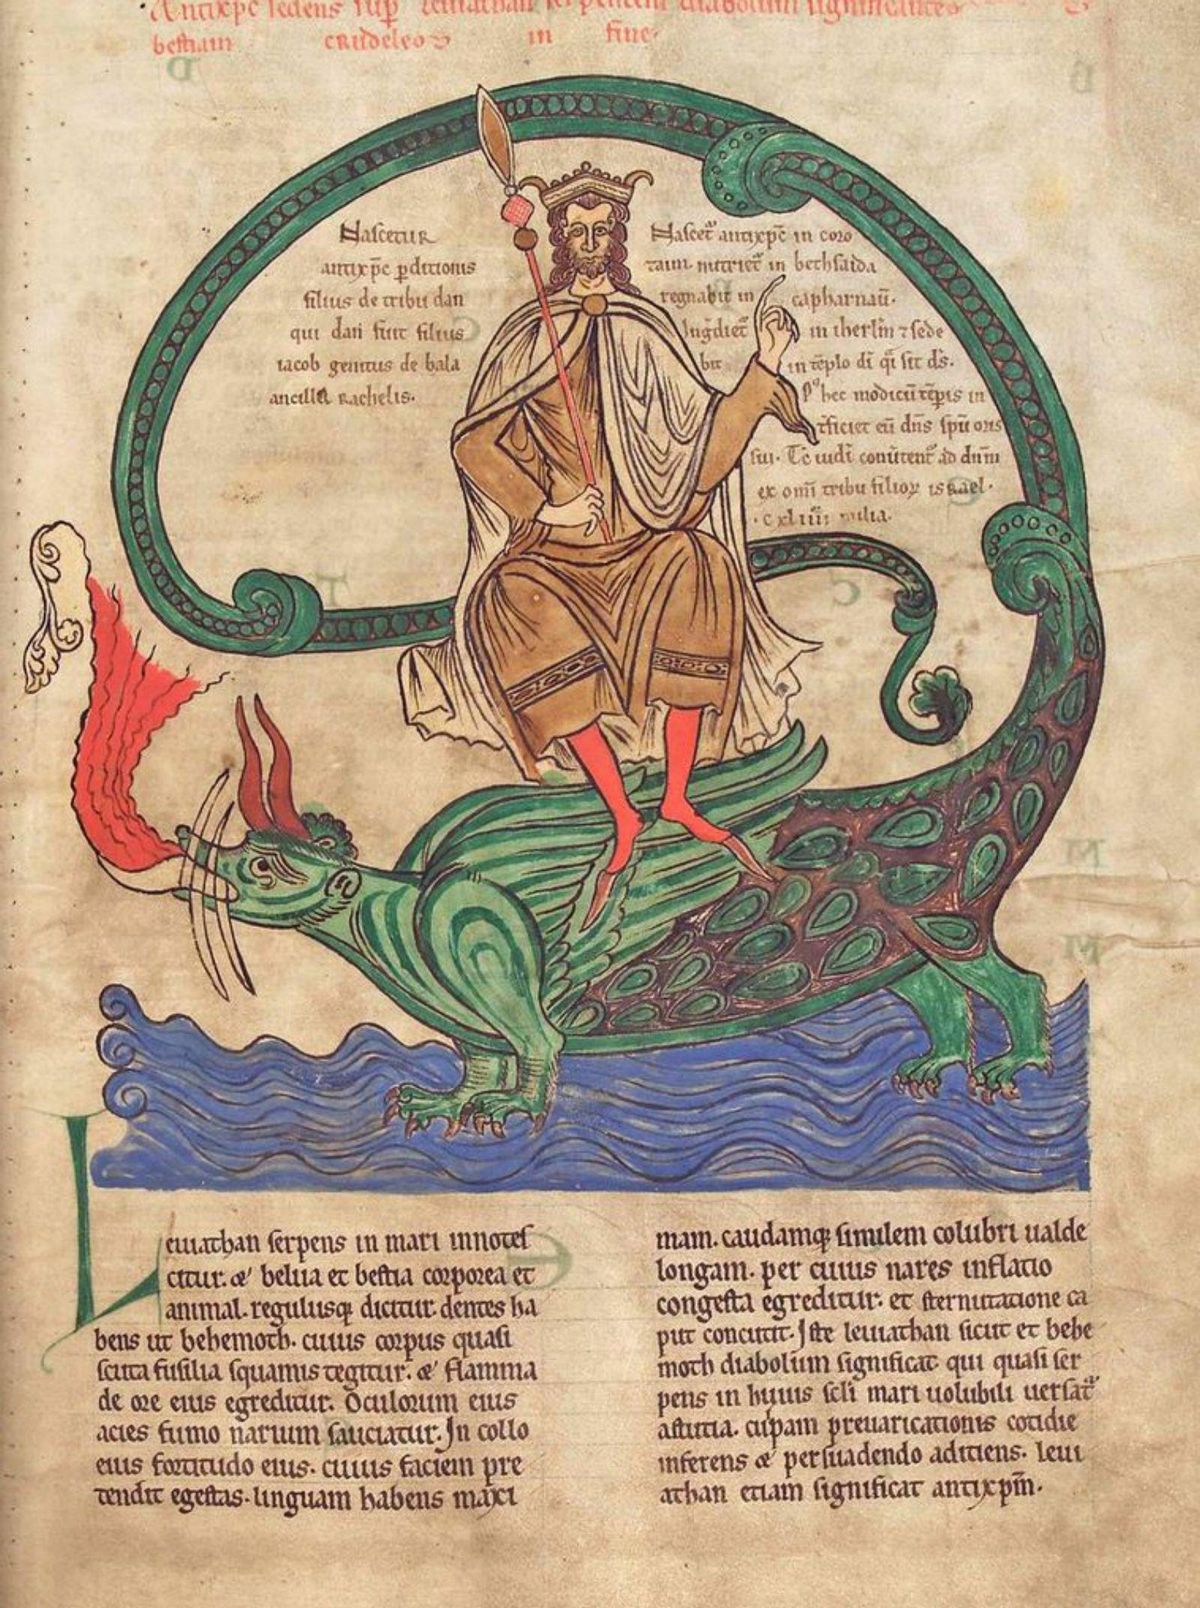 Antixp̄c sedens sup̄ leuiathan serpentem diabolum significantē
bestiam crudelem in fine.
Nascetur
antixp̄c p̄ditionis
filius de tribu dan
qui dan fuit filius
iacob genitus de bala
ancilla rachelis.
Nascet᷑ antixp̄c in coro
zaim. nutriet᷑ in bethsaida
regnabit in capharnaū.
Ingdiet᷑ in iherlm̄ ⁊ sede
bit in tēplo dī q̄i sit d̄s.
Pꝰ hec modicū tēpis in
t̄ficiet eū dn̄s spū oris
sui. Tc̄ iudī conūtent᷑ ad dn̄m
ex om̄i tribu filioꝝ israel.
.c xl iiii milia.
Leuiathan serpens in mari innotes
citur. & belua et bestia corporea et
animal. regulusqꝫ dicitur. dentes ha
bens ut behemoth. cuius corpus quasi
scuta fusilia squamis tegitur. & flamma
de ore eius egreditur. Oculorum eius
acies fumo narium sauciatur. In collo
eius fortitudo eius. cuius faciem pre
tendit egestas. linguam habens maxi
mam. caudamqꝫ similem colubri ualde
longam. per cuius nares inflatio
congesta egreditur. et sternutatione ca
put concutit. Iste leuiathan sicut et behe
moth diabolum significat qui quasi ser
pens in huius scl̄i mari uolubili uersat᷑
astutia. culpam preuaricationis cotidie
inferens & persuadendo adiciens. leui
athan etiam significat antixp̄m.